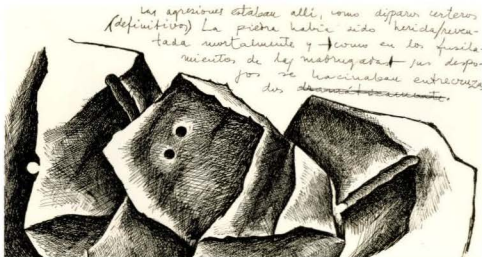 las agresiones estaban allí, como disparos certeros
(definitivos) La piedra había sido herida/reven-
tada mortalmente y como en los fusila-
mientos de las madrugadas sus despo-
jos se hacinaban entrecruza
dos